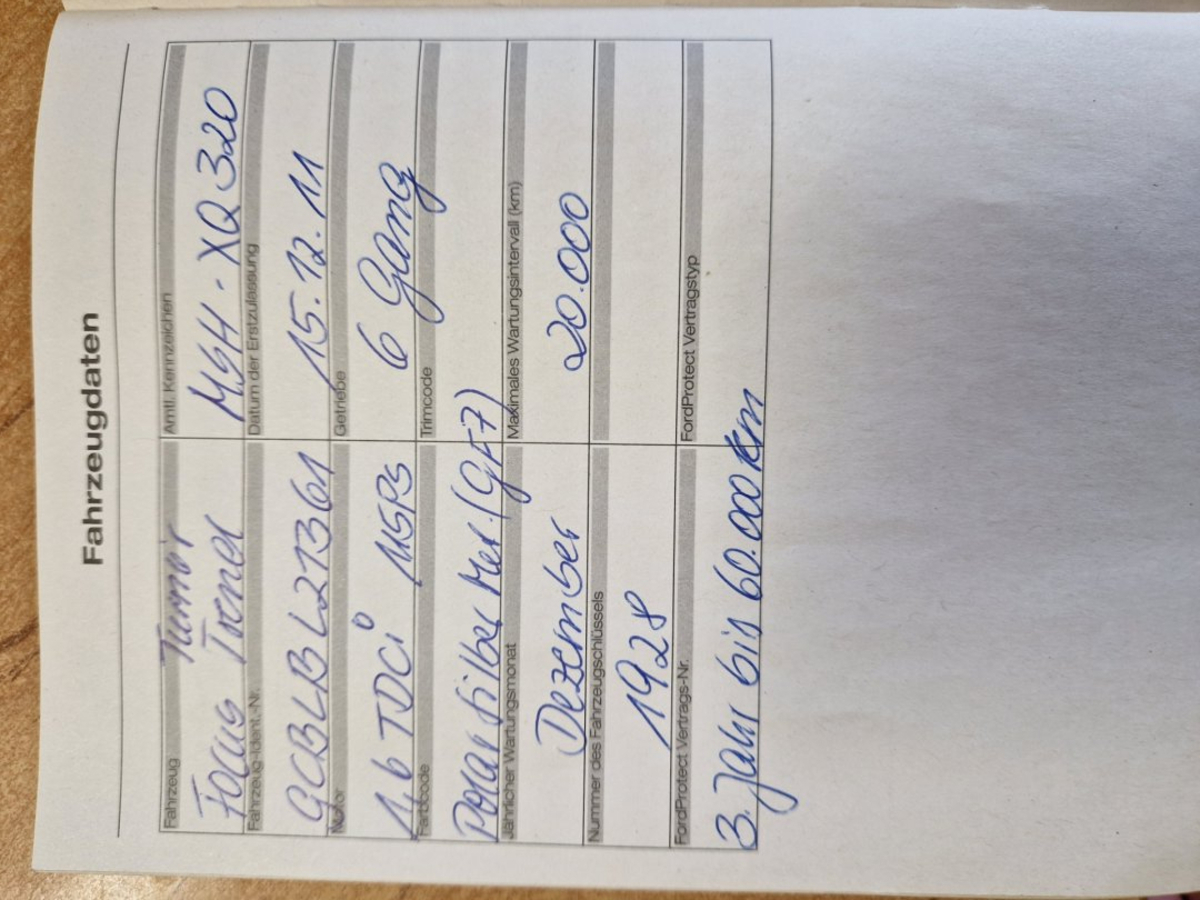 Fahrzeugdaten
Fahrzeug
Turnier
Focus Trend
Amtl. Kennzeichen
MSH - XQ 320
Fahrzeug-Ident.-Nr.
GCBLBL27361
Datum der Erstzulassung
15.12.11
Motor
1,6 TDCi 115PS
Getriebe
6 Gang
Farbcode
Polar Silber Met. (GF7)
Trimcode
Jährlicher Wartungsmonat
Dezember
Maximales Wartungsintervall (km)
20.000
Nummer des Fahrzeugschlüssels
1928
FordProtect Vertrags-Nr.
3. Jahr bis 60.000 km
FordProtect Vertragstyp